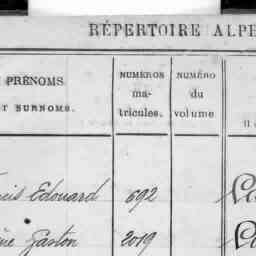 RÉPERTOIRE ALPH
PRÉNOMS
ET SURNOMS.
NUMÉROS
ma-
tricules.
NUMÉRO
du
volume
Edouard 692
Gaston 2019